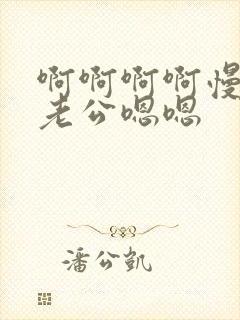 啊啊啊啊慢
老公嗯嗯
潘公凯